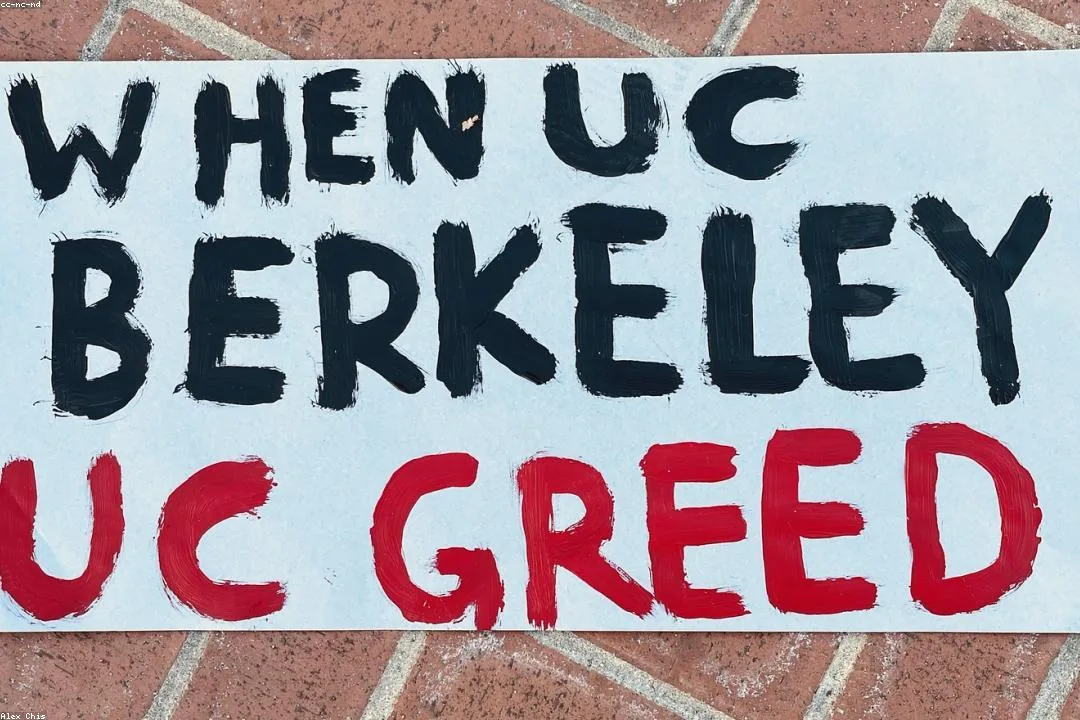 cc-nc-nd
WHEN UC
BERKELEY
UC GREED
Alex Chis